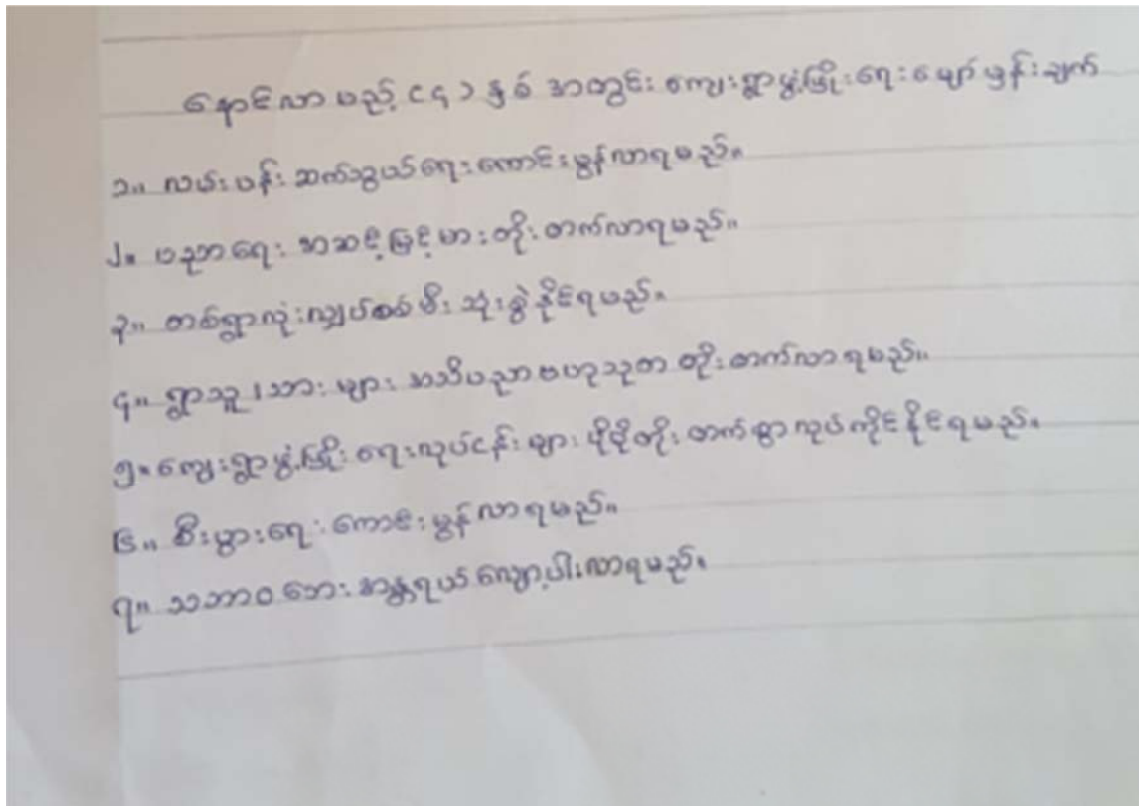 နောင်လာမည့် (၄) နှစ် အတွင်း ကျေးရွာဖွံ့ဖြိုးရေး မျှော်မှန်းချက်
၁။ လမ်းပန်း ဆက်သွယ်ရေး ကောင်းမွန်လာရမည်။
၂။ ပညာရေး အဆင့်မြင့်မားတိုးတက်လာရမည်။
၃။ တစ်ရွာလုံးလျှပ်စစ်မီး သုံးစွဲနိုင်ရမည်။
၄။ ရွာသူ၊သားများ အသိပညာ ဗဟုသုတ တိုးတက်လာရမည်။
၅။ ကျေးရွာဖွံ့ဖြိုးရေးလုပ်ငန်းများ ပိုမိုတိုးတက်စွာလုပ်ကိုင်နိုင်ရမည်။
၆။ စီးပွားရေး ကောင်းမွန်လာရမည်။
၇။ သဘာဝဘေးအန္တရယ် လျော့ပါးလာရမည်။